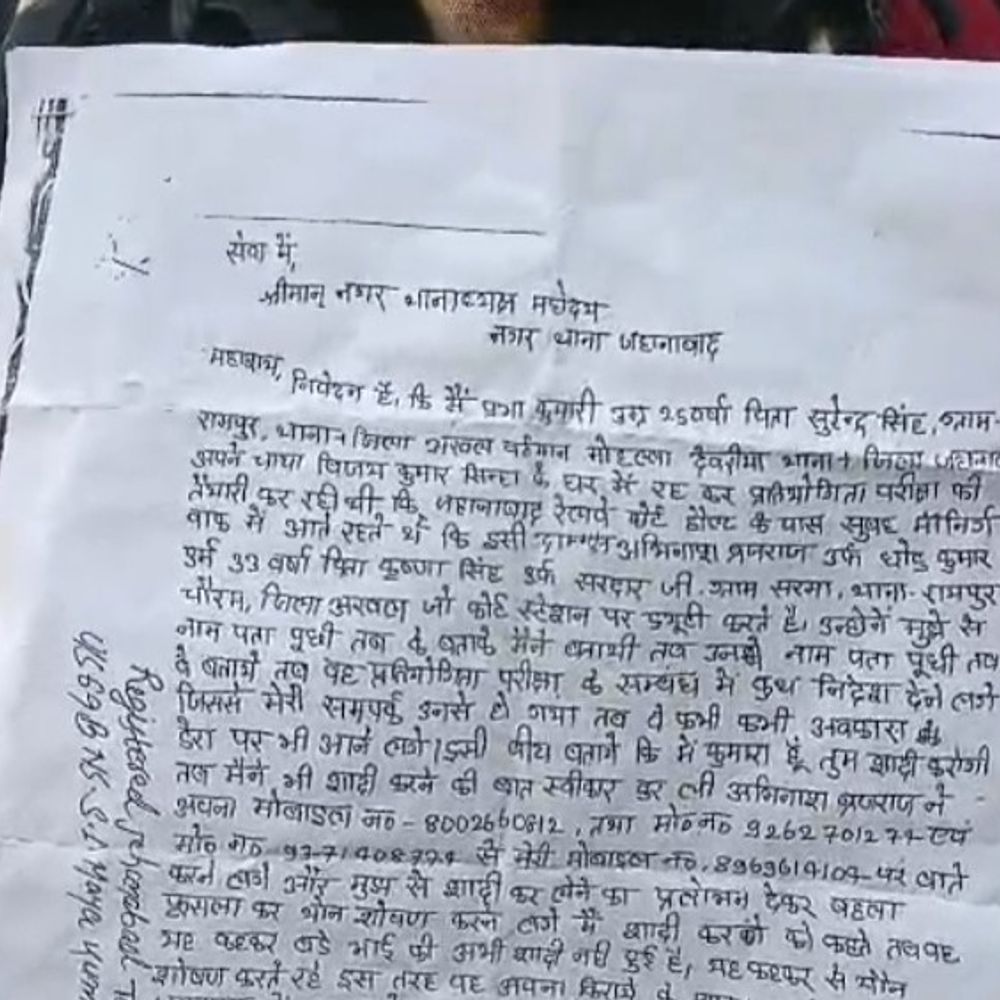 सेवा में,
श्रीमान् नगर थानाध्यक्ष महोदय
नगर थाना जहानाबाद
महाशय,
निवेदन है, कि मैं प्रभा कुमारी उम्र 25 वर्षा पिता सुरेन्द्र सिंह, ग्राम-
रामपुर, थाना+जिला अरवल वर्तमान मोहल्ला देवरीया थाना+ जिला
अपने चाचा विजय कुमार सिन्हा के घर में रह कर प्रतियोगिता परीक्षा की
तैयारी कर रही थी, कि जहानाबाद रेलवे कोर्ट के पास सुबह
वाक में आते रहते थे कि इसी अभिनाश व्रजराज उर्फ कुमार
उर्म 33 वर्षा पिता कृष्णा सिंह उर्फ सरदार जी, ग्राम सरमा, थाना- रामपुर
चौरम, जिला अरवल जो कोर्ट स्टेशन पर ड्यूटी करते है। उन्होनें मुझे से
नाम पता पूछी तब मैने बतायी तब उनसे नाम पता पूछी तब
वे बताये तब वह प्रतियोगिता परीक्षा के सम्बंध में कुछ निदेश देने लगे
जिससे मेरी सम्पर्क उनसे हो गया तब वे कभी कभी अवकास
डेरा पर भी आने लगे। इसी बीच बताये कि में कुमारा हूँ, तुम शादी करोगी
तब मैने भी शादी करने की बात स्वीकार कर ली अभिनाश व्रजराज ने
अपना मोबाइल न० - 8002660812, तथा मो०न० 9262701274 एवं
मो० न० से मेरी मोबाइल न०. 8969614104 पर बाते
करने लगे और मुझ से शादी कर लेने का प्रलोभन देकर बहला
फुसला कर यौन शोषण करने लगे मैं शादी करने को कहते तब वह
यह कहकर बडे भाई की अभी शादी नही हुई है, यह कहकर से यौन
शोषण करते रहे इस तरह वह अपना किराये के
Registered
U/S 69 BNS